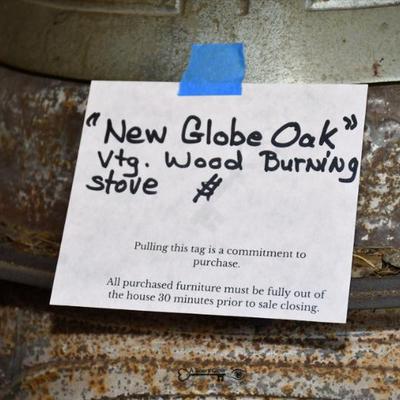 "New Globe Oak"
Vtg. Wood Burning
stove #
Pulling this tag is a commitment to
purchase.
All purchased furniture must be fully out of
the house 30 minutes prior to sale closing.